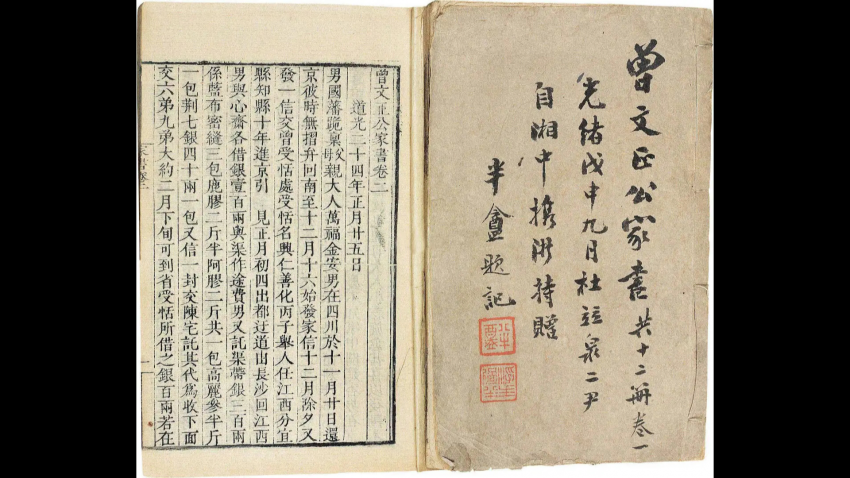 曾文正公家書共十二冊卷一
光緒戊申九月杜竝泉二尹
自湘中擕浙持贈
半盦題記
曾文正公家書卷二
道光二十四年正月廿五日
男國藩跪稟父母親大人萬福金安男在四川於十一月廿日還
京彼時無摺弁回南至十二月十六始發家信十二月除夕又
發一信交曾受恬處受恬名興仁善化丙子舉人任江西分宜
縣知縣十年進京引 見正月初四出都迂道由長沙回江西
男與心齋各借銀壹百兩與渠作途費男又託渠帶銀三百兩
係藍布密縫三包鹿膠二斤半阿膠二斤共一包高麗參半斤
一包荆七銀四十兩一包又信一封交陳宅託其代爲收下面
交六弟九弟大約二月下旬可到省受恬所借之銀百兩若在